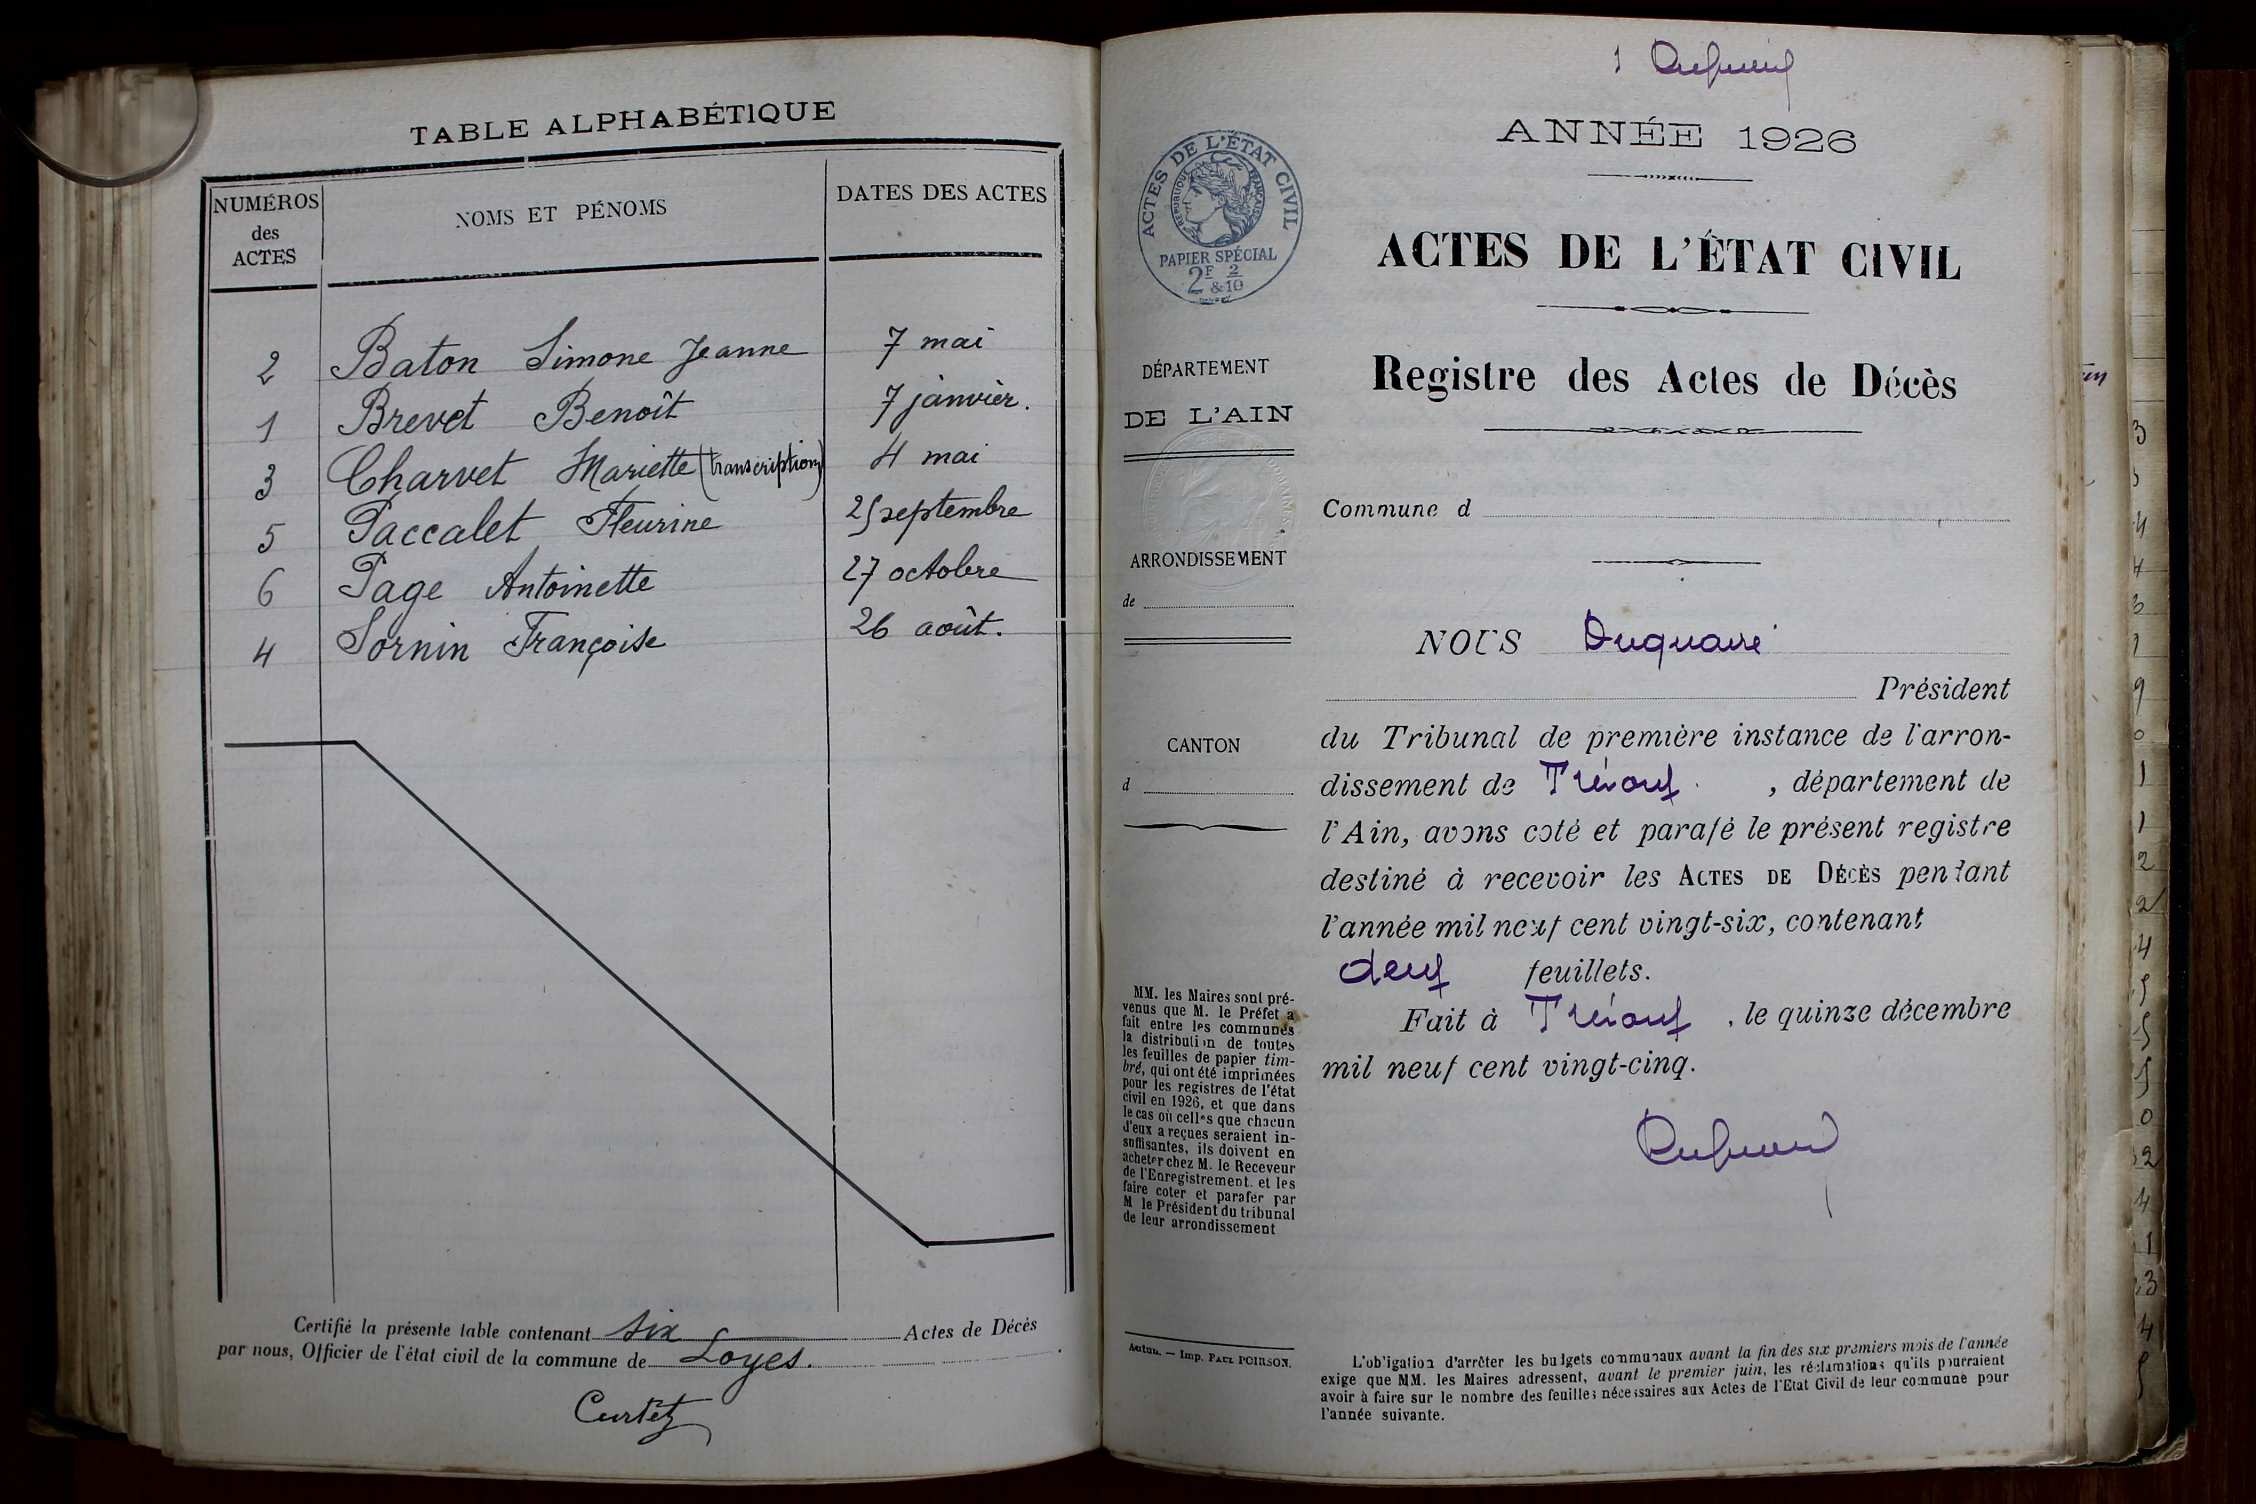 TABLE ALPHABÉTIQUE
NUMÉROS des ACTES
NOMS ET PÉNOMS
DATES DES ACTES
2 Baton Simone Jeanne 7 mai
1 Brevet Benoît 7 janvier.
3 Charvet Mariette (transcription) 4 mai
5 Paccalet Fleurine 25 septembre
6 Page Antoinette 27 octobre
4 Sornin Françoise 26 août.
Certifié la présente table contenant six Actes de Décès
par nous, Officier de l'état civil de la commune de Loyes.
Curtet
1
ANNÉE 1926
ACTES DE L'ÉTAT CIVIL
RÉPUBLIQUE FRANÇAISE
PAPIER SPÉCIAL
2F 2
&10
ACTES DE L'ÉTAT CIVIL
Registre des Actes de Décès
DÉPARTEMENT
DE L'AIN
Commune d
ARRONDISSEMENT
de
CANTON
d
NOUS Duquaire
Président
du Tribunal de première instance de l'arron-
dissement de Trévoux, département de
l'Ain, avons coté et parafé le présent registre
destiné à recevoir les ACTES DE DÉCÈS pendant
l'année mil neuf cent vingt-six, contenant
deux feuillets.
Fait à Trévoux, le quinze décembre
mil neuf cent vingt-cinq.
MM. les Maires sont pré-
venus que M. le Préfet a
fait entre les communes
la distribution de toutes
les feuilles de papier tim-
bré, qui ont été imprimées
pour les registres de l'état
civil en 1926, et que dans
le cas où celles que chacun
d'eux a reçues seraient in-
suffisantes, ils doivent en
acheter chez M. le Receveur
de l'Enregistrement. et les
faire coter et parafer par
M le Président du tribunal
de leur arrondissement
Autun. — Imp. PAUL POIRSON.
L'obligation d'arrêter les budgets communaux avant la fin des six premiers mois de l'année
exige que MM. les Maires adressent, avant le premier juin, les réclamations qu'ils pourraient
avoir à faire sur le nombre des feuilles nécessaires aux Actes de l'Etat Civil de leur commune pour
l'année suivante.